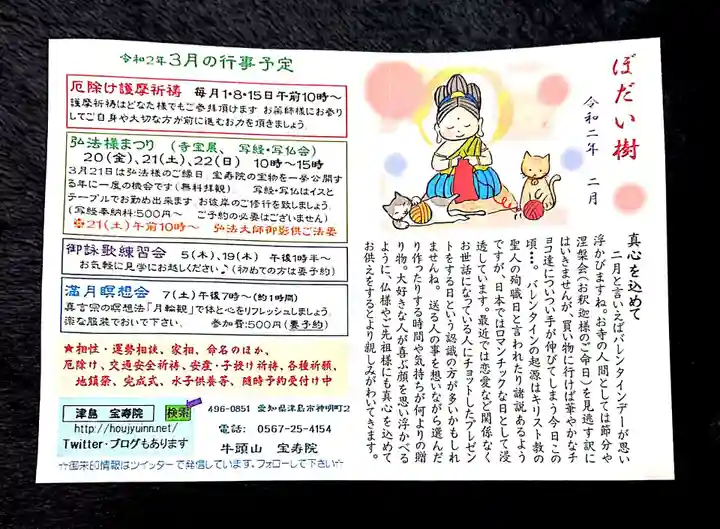 ぼだい樹
令和二年 二月
真心を込めて
二月と言えばバレンタインデーが思い
浮かびますね。お寺の人間としては節分や
涅槃会(お釈迦様のご命日)を見逃す訳に
はいきませんが、買い物に行けば華やかなチ
ョコ達についつい手が伸びてしまう今日この
頃…。バレンタインの起源はキリスト教の
聖人の殉職日と言われたり諸説あるよう
ですが、日本ではロマンチックな日として浸
透しています。最近では恋愛など関係なく
お世話になっている人にチョットしたプレゼン
トをする日という認識の方が多いかもしれ
ませんね。送る人の事を想いながら選んだ
り作ったりする時間や気持ちが何よりの贈
り物。大好きな人が喜ぶ顔を思い浮かべる
ように、仏様やご先祖様にも真心を込めて
お供えをするとより親しみがわいてきます。
令和2年3月の行事予定
厄除け護摩祈祷 毎月1・8・15日午前10時~
護摩祈祷はどなた様でもご参拝頂けます お薬師様にお参り
してご自身や大切な方が前に進むお力を頂きましょう。
弘法様まつり (寺宝展、 写経・写仏会)
20(金)、21(土)、22(日) 10時~15時
3月21日は弘法様のご縁日 宝寿院の宝物を一挙公開す
る年に一度の機会です(無料拝観) 写経・写仏はイスと
テーブルでお勤め出来ます お彼岸のご修行を致しましょう。
(写経奉納料:500円~ ご予約の必要はございません)
※21(土)午前10時~ 弘法大師御影供ご法要
御詠歌練習会 5(木)、19(木) 午後1時半~
お気軽に見学にお越しください♪(初めての方は要予約)
満月瞑想会 7(土)午後7時~(約1時間)
真言宗の瞑想法「月輪観」で体と心をリフレッシュしましょう。
楽な服装でおいで下さい。 参加費:500円(要予約)
★相性・運勢相談、家相、命名のほか、
厄除け、交通安全祈祷、安産・子授け祈祷、各種祈願、
地鎮祭、完成式、水子供養等、随時予約受付け中
津島 宝寿院 検索
http://houjyuinn.net/
Twitter・ブログもあります
496-0851 愛知県津島市神明町2
電話: 0567-25-4154
牛頭山 宝寿院
☆御朱印情報はツイッターで発信しています。フォローして下さい☆